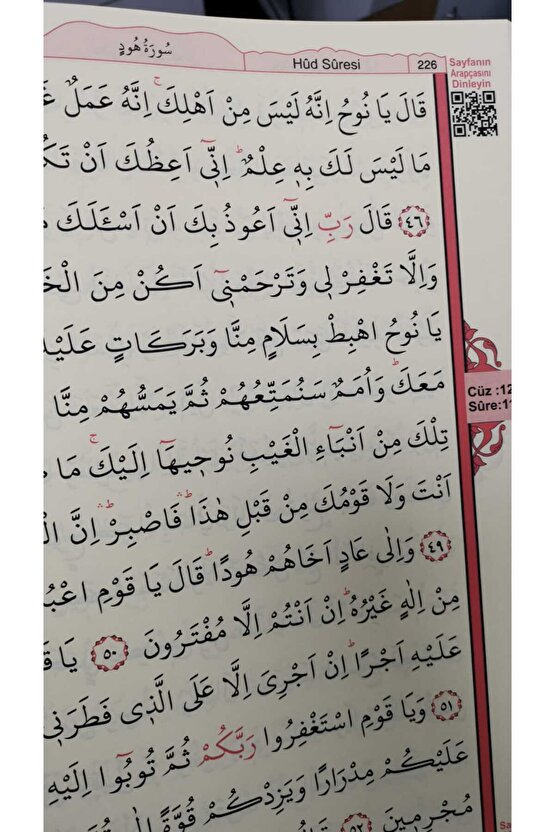 سُورَةُ هُودٍ
Hûd Sûresi
226
Sayfanın
Arapçasını
Dinleyin
قَالَ يَا نُوحُ اِنَّهُ لَيْسَ مِنْ اَهْلِكَۚ اِنَّهُ عَمَلٌ
مَا لَيْسَ لَكَ بِه۪ عِلْمٌۜ اِنّ۪ٓي اَعِظُكَ اَنْ
﴿٤٦﴾ قَالَ رَبِّ اِنّ۪ٓي اَعُوذُ بِكَ اَنْ اَسْـَٔلَكَ
وَاِلَّا تَغْفِرْ ل۪ي وَتَرْحَمْن۪ٓي اَكُنْ مِنَ
يَا نُوحُ اهْبِطْ بِسَلَامٍ مِنَّا وَبَرَكَاتٍ
مَعَكَۜ وَاُمَمٌ سَنُمَتِّعُهُمْ ثُمَّ يَمَسُّهُمْ مِنَّا
تِلْكَ مِنْ اَنْبَٓاءِ الْغَيْبِ نُوح۪يهَٓا اِلَيْكَۚ مَا
اَنْتَ وَلَا قَوْمُكَ مِنْ قَبْلِ هٰذَاۜۛ فَاصْبِرْۜۛ اِنَّ
﴿٤٩﴾ وَاِلٰى عَادٍ اَخَاهُمْ هُودًاۜ قَالَ يَا قَوْمِ
مِنْ اِلٰهٍ غَيْرُهُۜ اِنْ اَنْتُمْ اِلَّا مُفْتَرُونَ ﴿٥٠﴾ يَا
عَلَيْهِ اَجْرًاۜ اِنْ اَجْرِيَ اِلَّا عَلَى الَّذ۪ي فَطَرَن۪ي
﴿٥١﴾ وَيَا قَوْمِ اسْتَغْفِرُوا رَبَّكُمْ ثُمَّ تُوبُٓوا اِلَيْهِ
عَلَيْكُمْ مِدْرَارًا وَيَزِدْكُمْ قُوَّةً
مُجْرِم۪ينَ ﴿٥٢﴾
Cüz :12